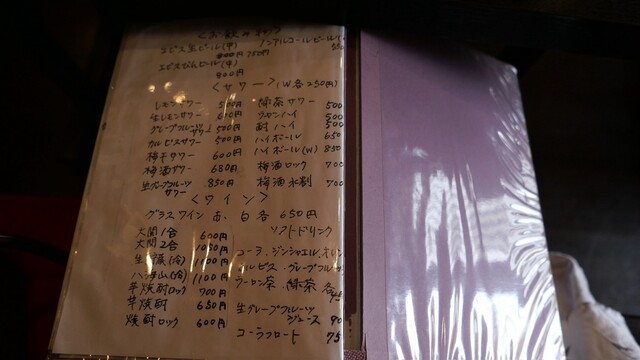 <お飲み物>
エビス生ビール(中) ノンアルコールビール
800円 750円 550
エビスびんビール(中)
900円
<サワー> (W各250円)
レモンサワー 500円 緑茶サワー 500
生レモンサワー 600円 ウーロンハイ 500
グレープフルーツサワー 500円 酎ハイ 500
カルピスサワー 500円 ハイボール 650
梅干サワー 600円 ハイボール(W) 850
梅酒サワー 680円 梅酒ロック 700
生グレープフルーツサワー 850円 梅酒水割 700
<ワイン>
グラスワイン 赤、白 各 650円
大関1合 600円 ソフトドリンク
大関2合 1050円
コーラ、ジンジャエル、オレン
生 (冷) 1100円
カルピス、グレープフルーツ
八海山(冷) 1100円
ウーロン茶、緑茶 各
芋焼酎ロック 700円
芋焼酎 650円
生グレープフルーツジュース 90
焼酎ロック 600円
コーラフロート 75